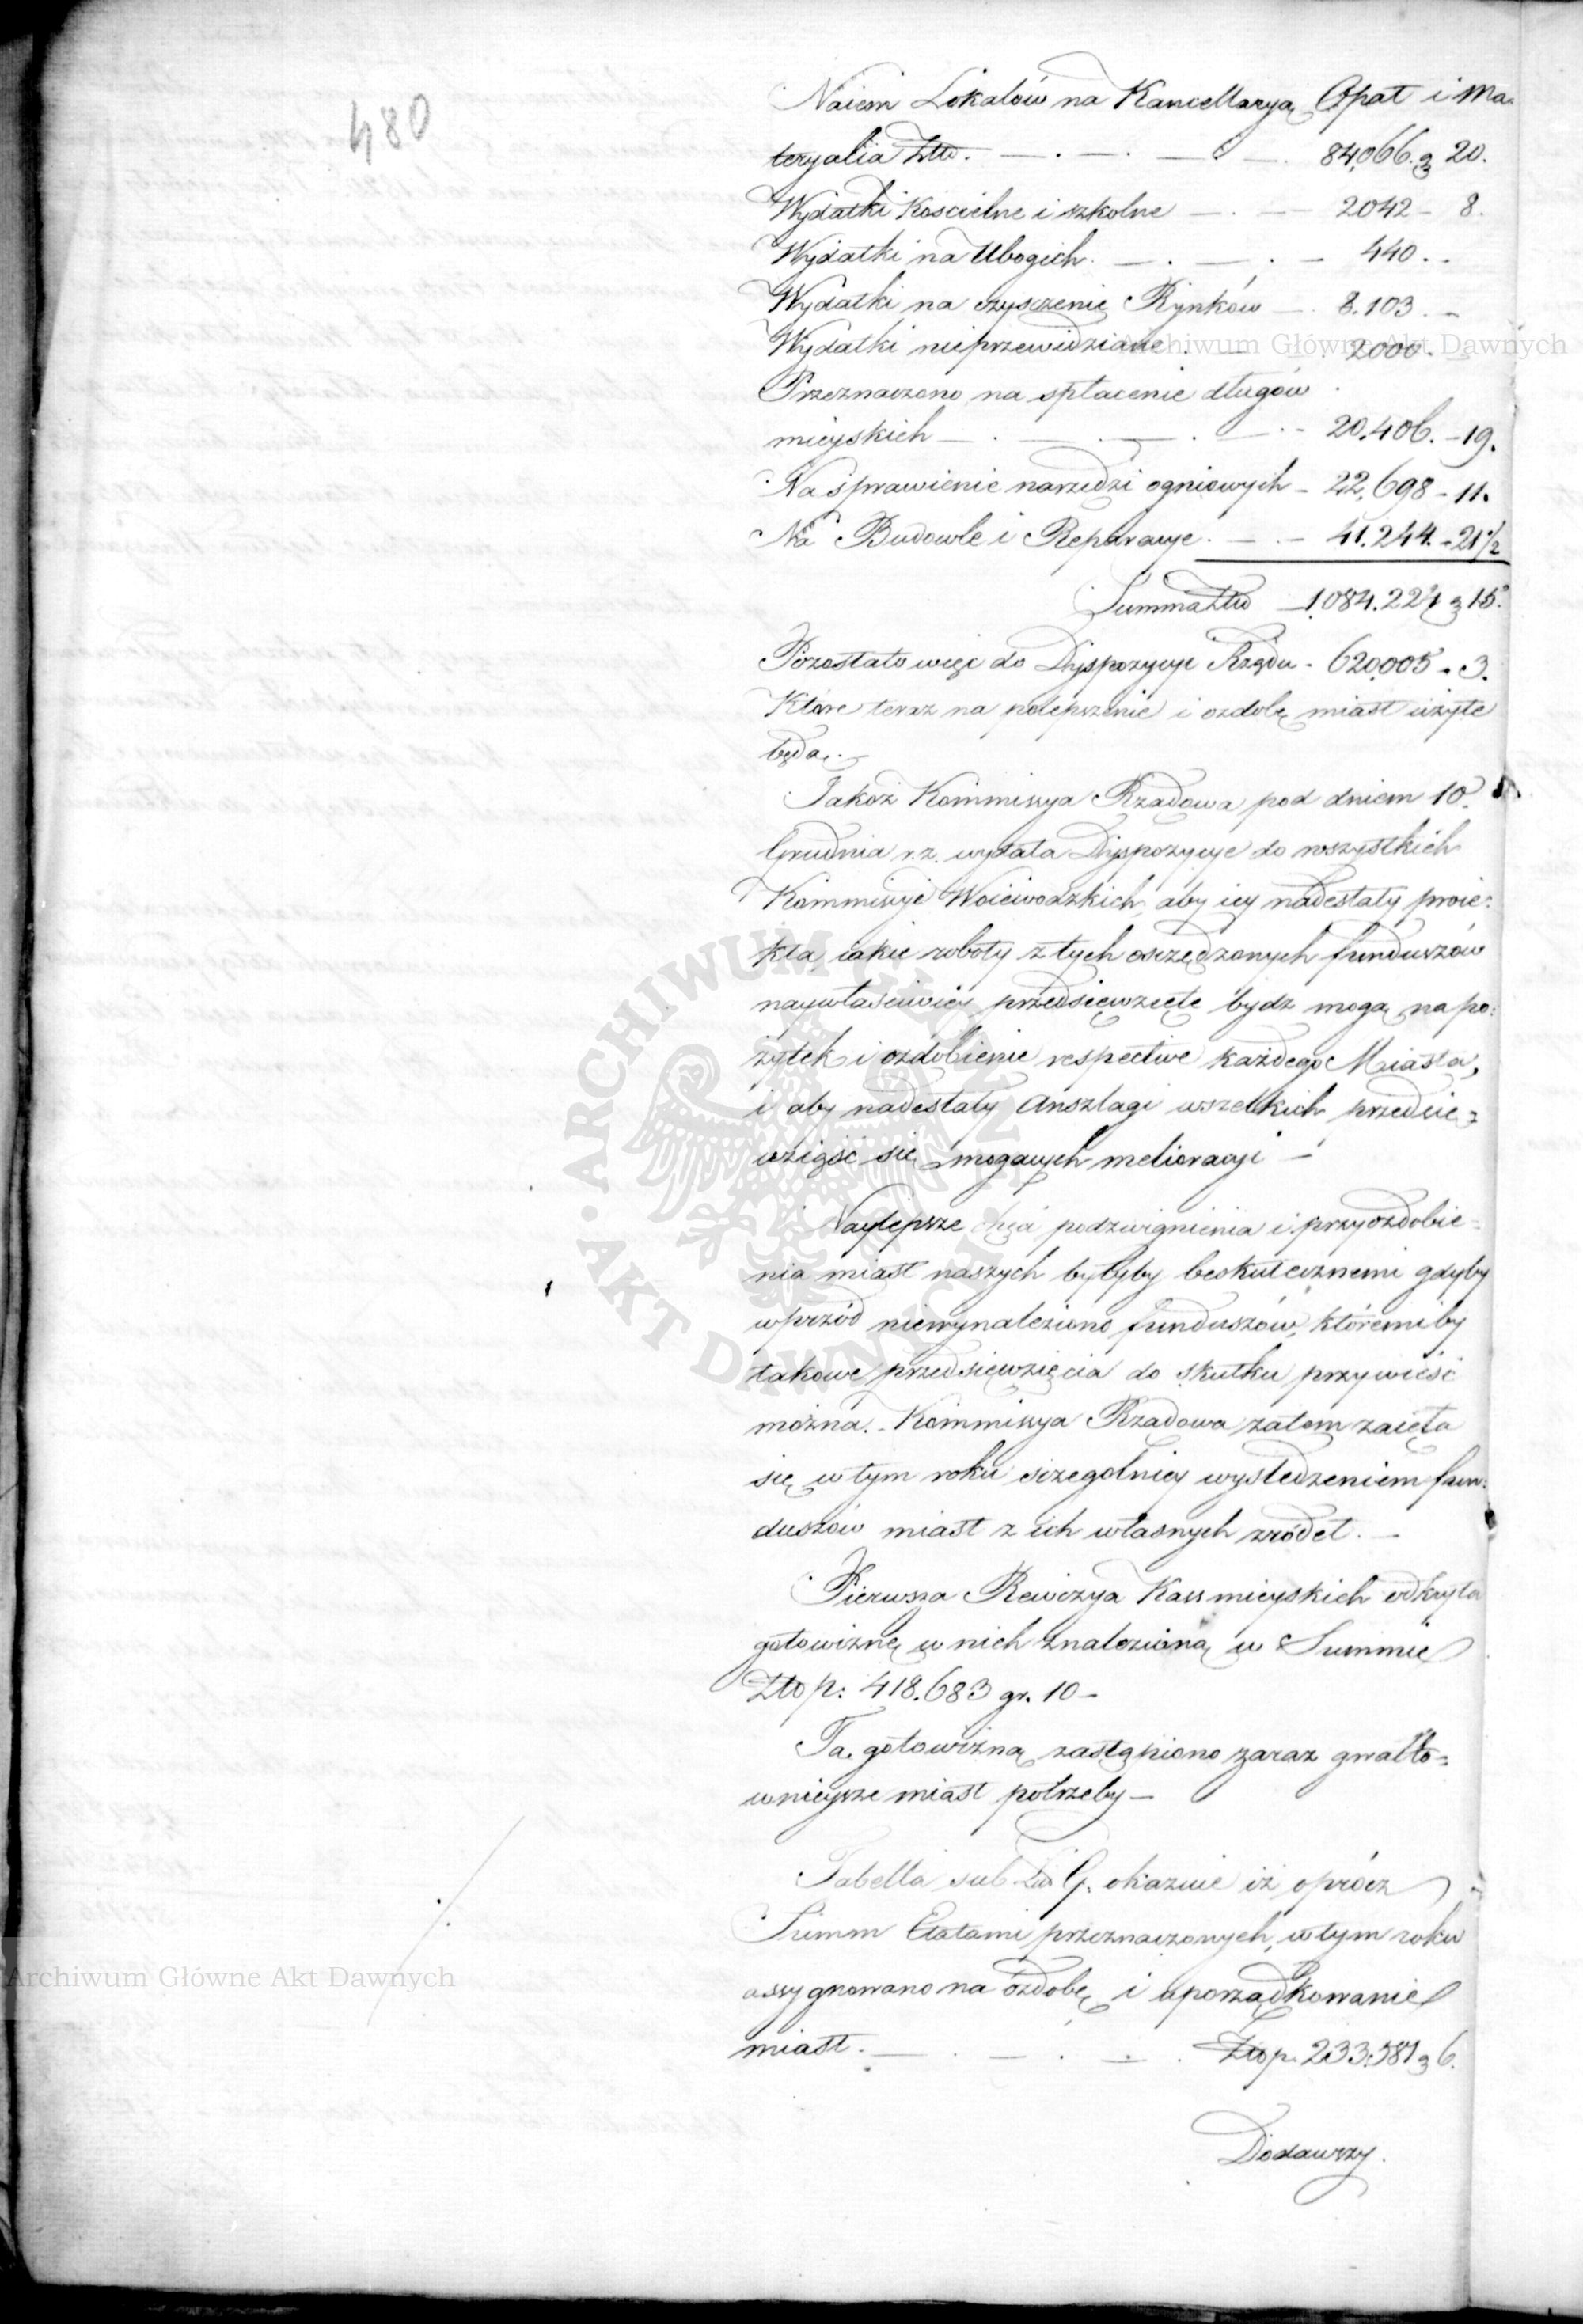 480
Naiem Lokalów na Kancellaryą Opał i Ma-
teryalia Złtt. — . — . — . — 84,066. g 20.
Wydatki Koscielne i szkolne — . — 2042 - 8.
Wydatki na Ubogich. — . — . - 440. -
Wydatki na czysczenie Rynków — . 8.103. -
Wydatki nieprzewidziane . — . 2000. -
Przeznaczono na spłacenie długów
mieyskich — . — . — . — . - 20.406. - 19.
Na sprawienie narzędzi ogniowych - 22,698 - 11.
Na Budowle i Reparacye . — . - 41.244. - 21 1/2
Summa Złtt — 1,084.224 g 15.
Pozostało więc do Dyspozycyi Rządu - 620,005 - 3.
Które teraz na polepszenie i ozdobę miast użyte
będą. -
Jakoż Kommissya Rządowa pod dniem 10.
Grudnia r.z. wydała Dyspozycye do wszystkich
Kommissyi Woiewodzkich, aby iey nadesłały proie-
kta, iakie roboty z tych osczędzonych funduszów
naywłaściwiey przedsięwzięte bydz mogą na po-
żytek i ozdobienie respective każdego Miasta,
i aby nadesłały Anszlagi wszelkich przedsię-
wziąść się mogących melioracyi —
Naylepsze chęci podzwignienia i przyozdobie-
nia miast naszych byłyby beskutecznemi gdyby
wprzód niewynaleziono funduszów, któremiby
takowe przedsięwzięcia do skutku przywieść
można. - Kommissya Rządowa zatem zaięła
się w tym roku sczegolniey wysledzeniem fun-
duszów miast z ich własnych zródeł. —
Pierwsza Rewizya Kass mieyskich odkryła
gotowiznę w nich znalezioną w Summie
Złto p: 418.683 gr. 10 -
Tą gotowizną zastąpiono zaraz gwałto-
wnieysze miast potrzeby —
Tabella sub Lit G. okazuie iż oprócz
Summ Etatami przeznaczonych, w tym roku
assygnowano na ozdobę i uporządkowanie
miast. — . — . — . Złto p. 233.581 g 6.
Dodawszy.
Archiwum Główne Akt Dawnych
Archiwum Główne Akt Dawnych
ARCHIWUM GŁÓWNE AKT DAWNYCH